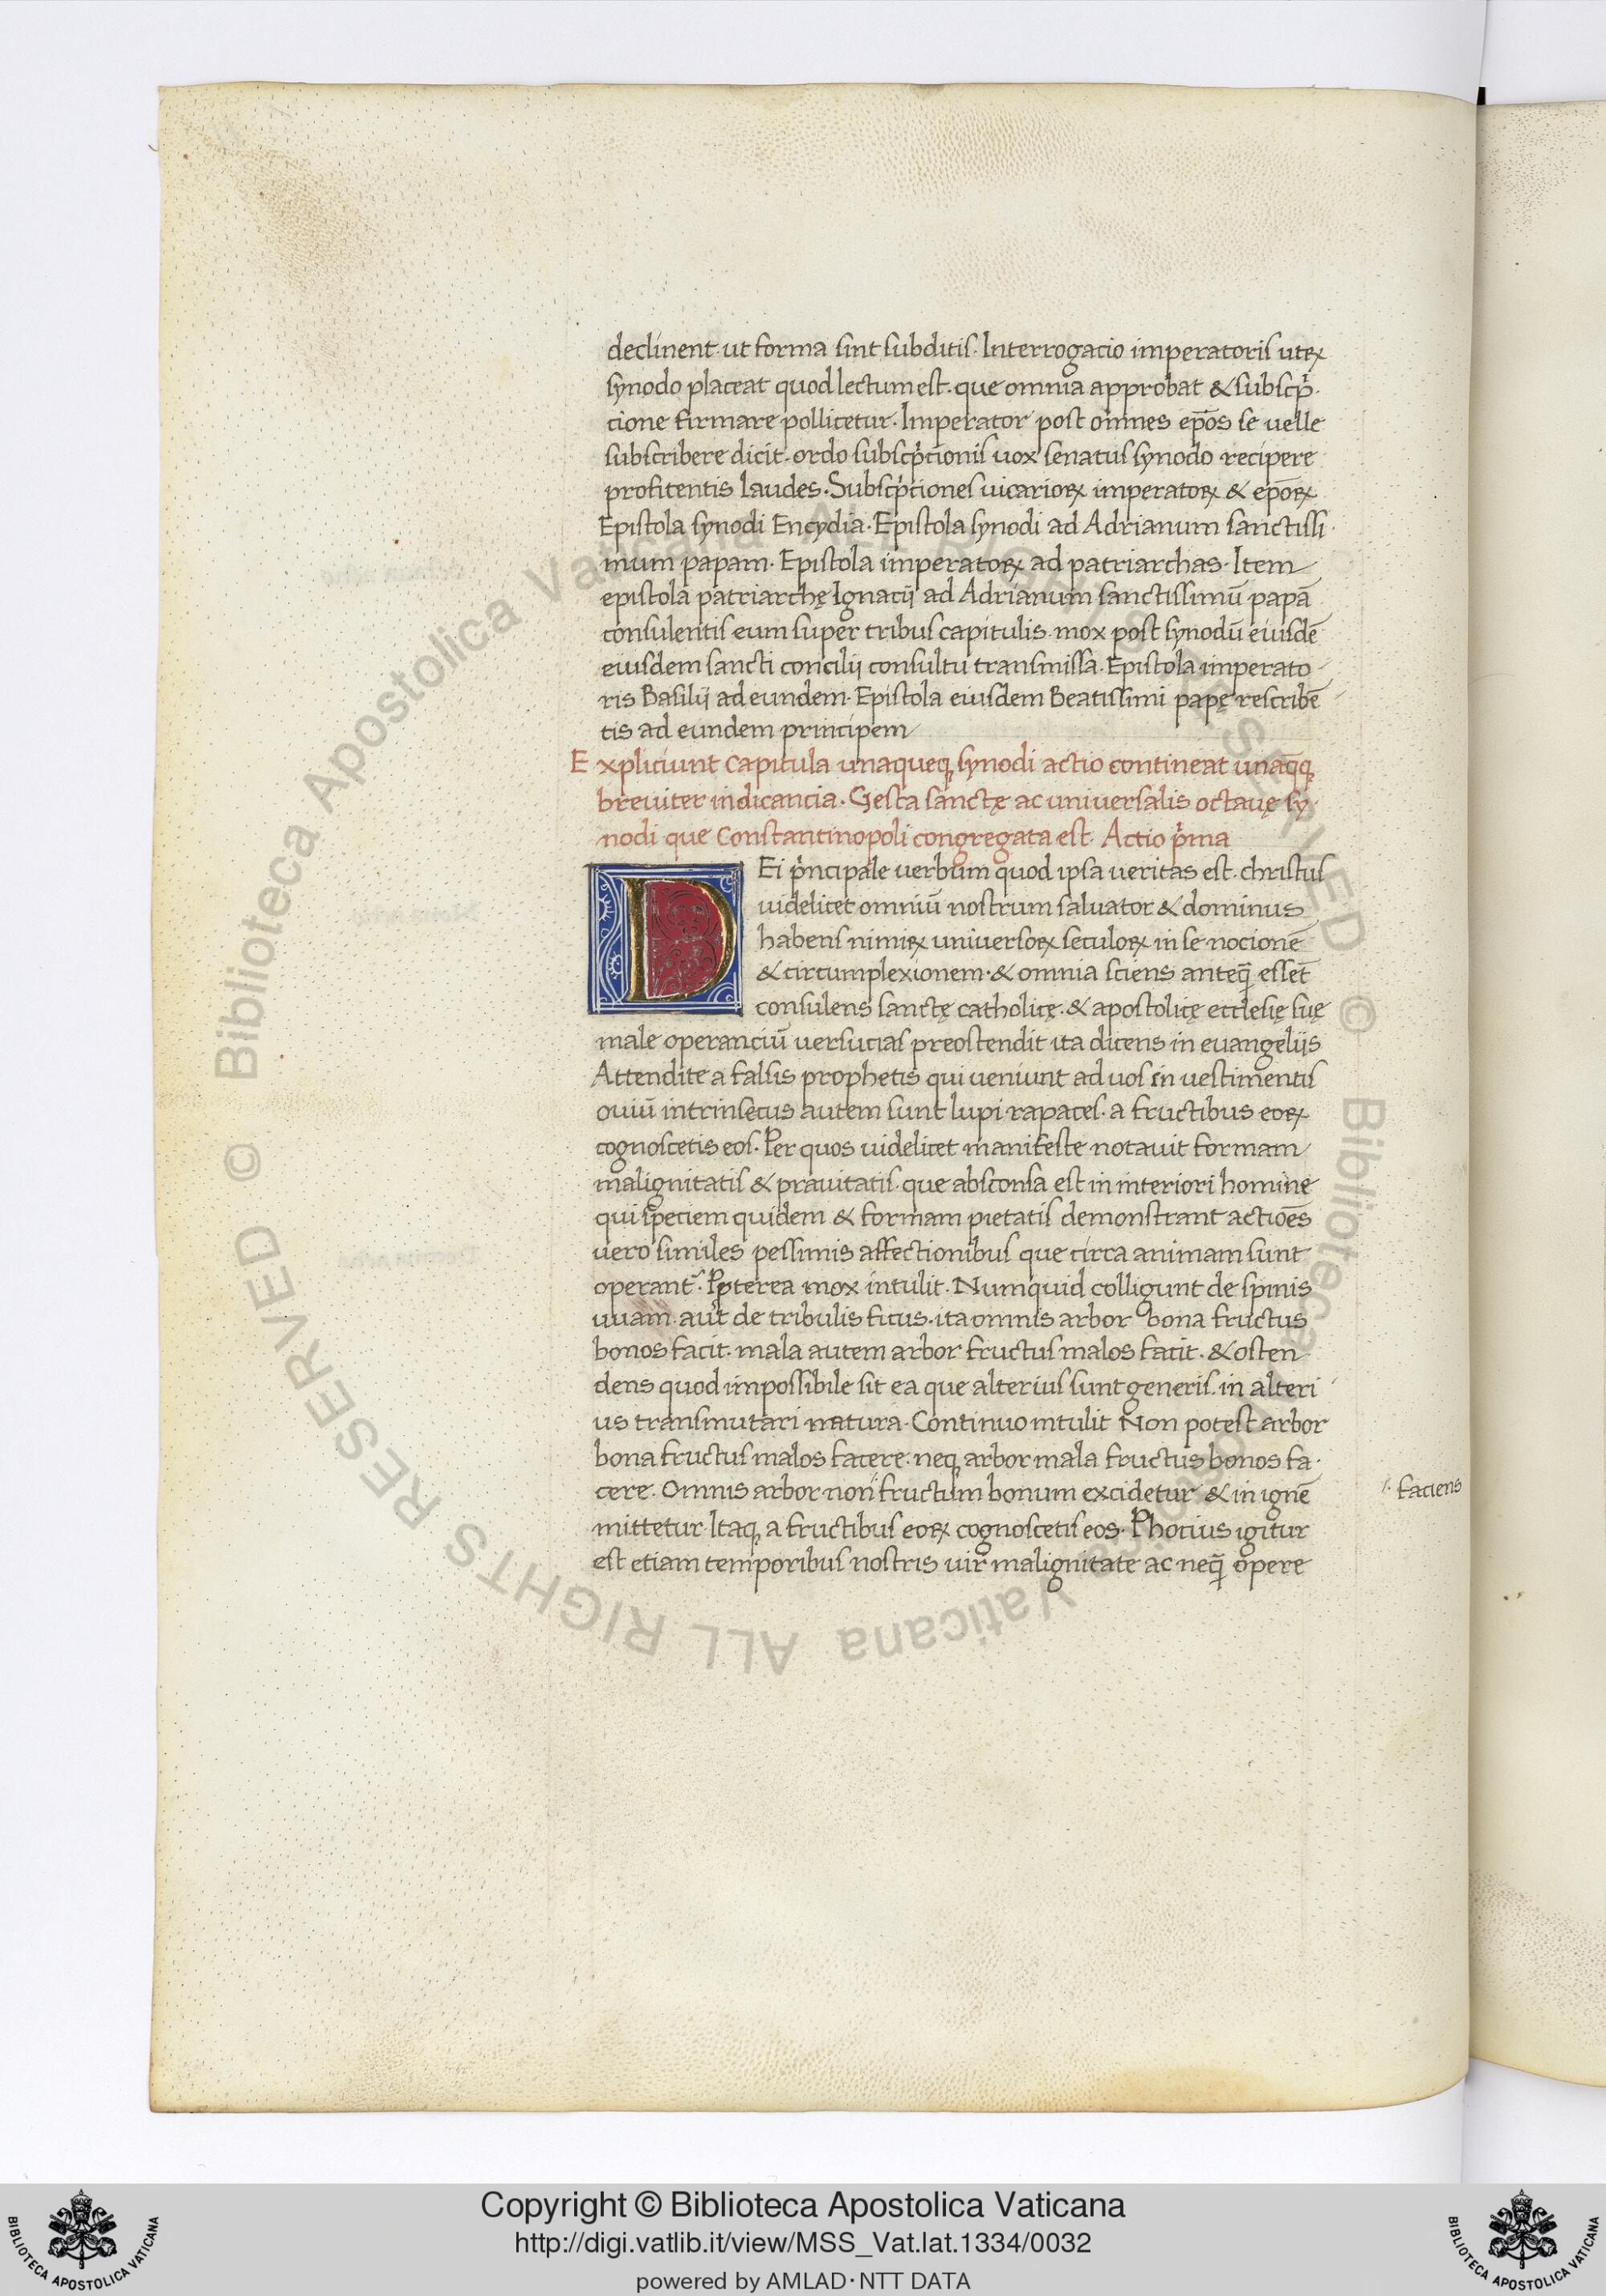 declinent. ut forma sint subditis. Interrogacio imperatoris utꝝ
synodo placeat quod lectum est. que omnia approbat & subscp̍
cione firmare pollicetur. Imperator post omnes ep̄os se uelle
subscribere dicit. ordo subscp̍cionis uox senatus synodo recipere
profitentis laudes. Subscp̍ciones uicarioꝝ imperatoꝝ & ep̄oꝝ
Epistola synodi Encydia. Epistola synodi ad Adrianum sanctissi
mum papam. Epistola imperatoꝝ ad patriarchas. Item
epistola patriarchę Ignacij ad Adrianum sanctissimū papā
consulentis eum super tribus capitulis. mox post synodū eiusdē
eiusdem sancti concilij consultu transmissa. Epistola imperato
ris Basilij ad eundem. Epistola eiusdem Beatissimi papę rescribē
tis ad eundem principem
Expliciunt Capitula unaqueqꝫ synodi actio contineat unāqꝫ
breuiter indicancia. Gesta sanctę ac uniuersalis octauę sy
nodi que Constantinopoli congregata est. Actio p̍ma
DEi p̍ncipale uerbum quod ipsa ueritas est. christus
uidelicet omniū nostrum saluator & dominus
habens nimiꝝ uniuersoꝝ seculoꝝ in se nocionē
& circumplexionem. & omnia sciens anteq̄ essēt
consulens sanctę catholicę. & apostolicę ecclesię suę
male operanciū uersucias preostendit ita dicens in euangelijs
Attendite a falsis prophetis qui ueniunt ad uos in uestimentis
ouiū intrinsecus autem sunt lupi rapaces. a fructibus eoꝝ
cognoscetis eos. Per quos uidelicet manifeste notauit formam
malignitatis & prauitatis. que absconsa est in interiori homine
qui speciem quidem & formam pietatis demonstrant actiōes
uero similes pessimis affectionibus que circa animam sunt
operant᷑. Ꝓpterea mox intulit. Numquid colligunt de spinis
uuam. aut de tribulis ficus. ita omnis arbor bona fructus
bonos facit. mala autem arbor fructus malos facit. & osten
dens quod impossibile sit ea que alterius sunt generis. in alteri
us transmutari natura. Continuo intulit Non potest arbor
bona fructus malos facere: neqꝫ arbor mala fructus bonos fa
cere. Omnis arbor non fructum bonum excidetur & in ignē
faciens
mittetur. Itaqꝫ a fructibus eoꝝ cognoscetis eos. Phocius igitur
est etiam temporibus nostris uir malignitate ac neq̄ opere
Copyright © Biblioteca Apostolica Vaticana
http://digi.vatlib.it/view/MSS_Vat.lat.1334/0032
powered by AMLAD·NTT DATA
BIBLIOTECA APOSTOLICA VATICANA
BIBLIOTECA APOSTOLICA VATICANA
© Biblioteca Apostolica Vaticana ALL RIGHTS RESERVED © Biblioteca Apostolica Vaticana ALL RIGHTS RESERVED